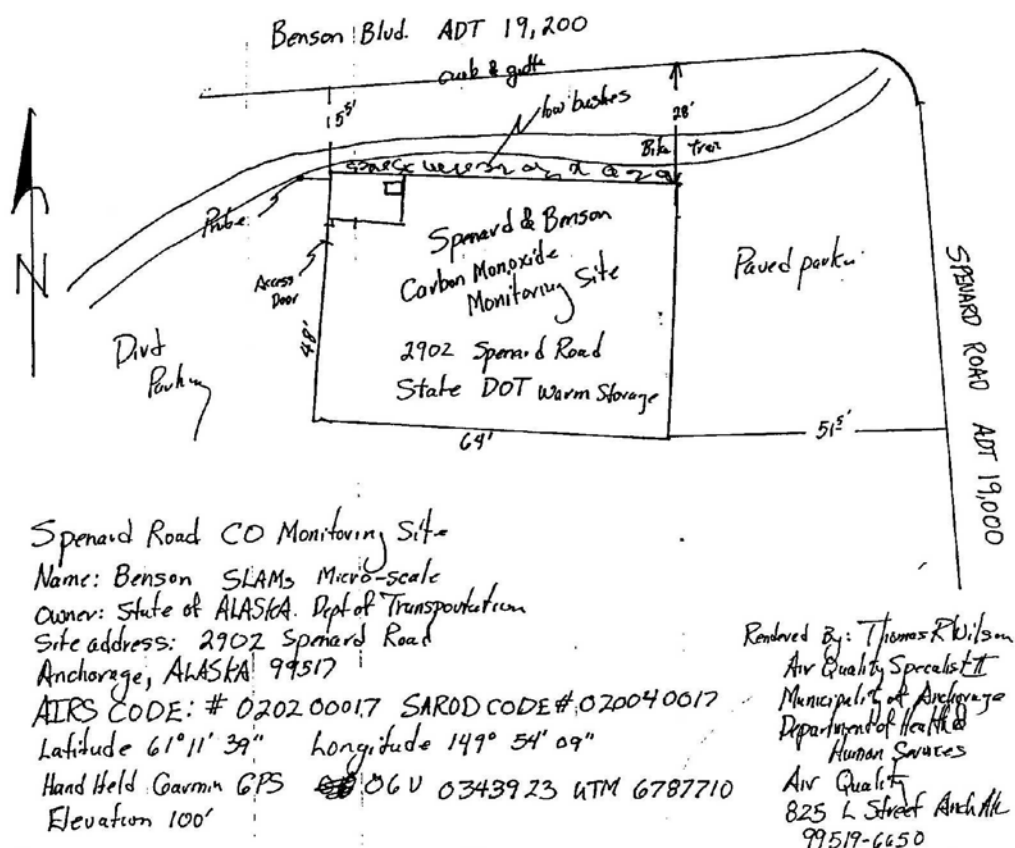 Benson Blvd. ADT 19,200
curb & gutter
low bushes
15⁵'
28'
Bike Trai
Probe
N
Access
Door
Spenard & Benson
Carbon Monoxide
Monitoring Site
2902 Spenard Road
State DOT Warm Storage
Paved parkin
SPENARD ROAD ADT 19,000
Dirt
Parking
48'
64'
51⁵'
Spenard Road CO Monitoring Site
Name: Benson SLAMs Micro-scale
Owner: State of ALASKA. Dept of Transportation
Site address: 2902 Spenard Road
Anchorage, ALASKA 99517
AIRS CODE: # 020200017 SAROD CODE# 020040017
Latitude 61° 11' 39" Longitude 149° 54' 09"
Hand Held Garmin GPS 06 V 0343923 UTM 6787710
Elevation 100'
Rendered By: Thomas R Wilson
Air Quality Specalist II
Municipality of Anchorage
Department of Health &
Human Services
Air Quality
825 L Street Anch AK
99519-6650